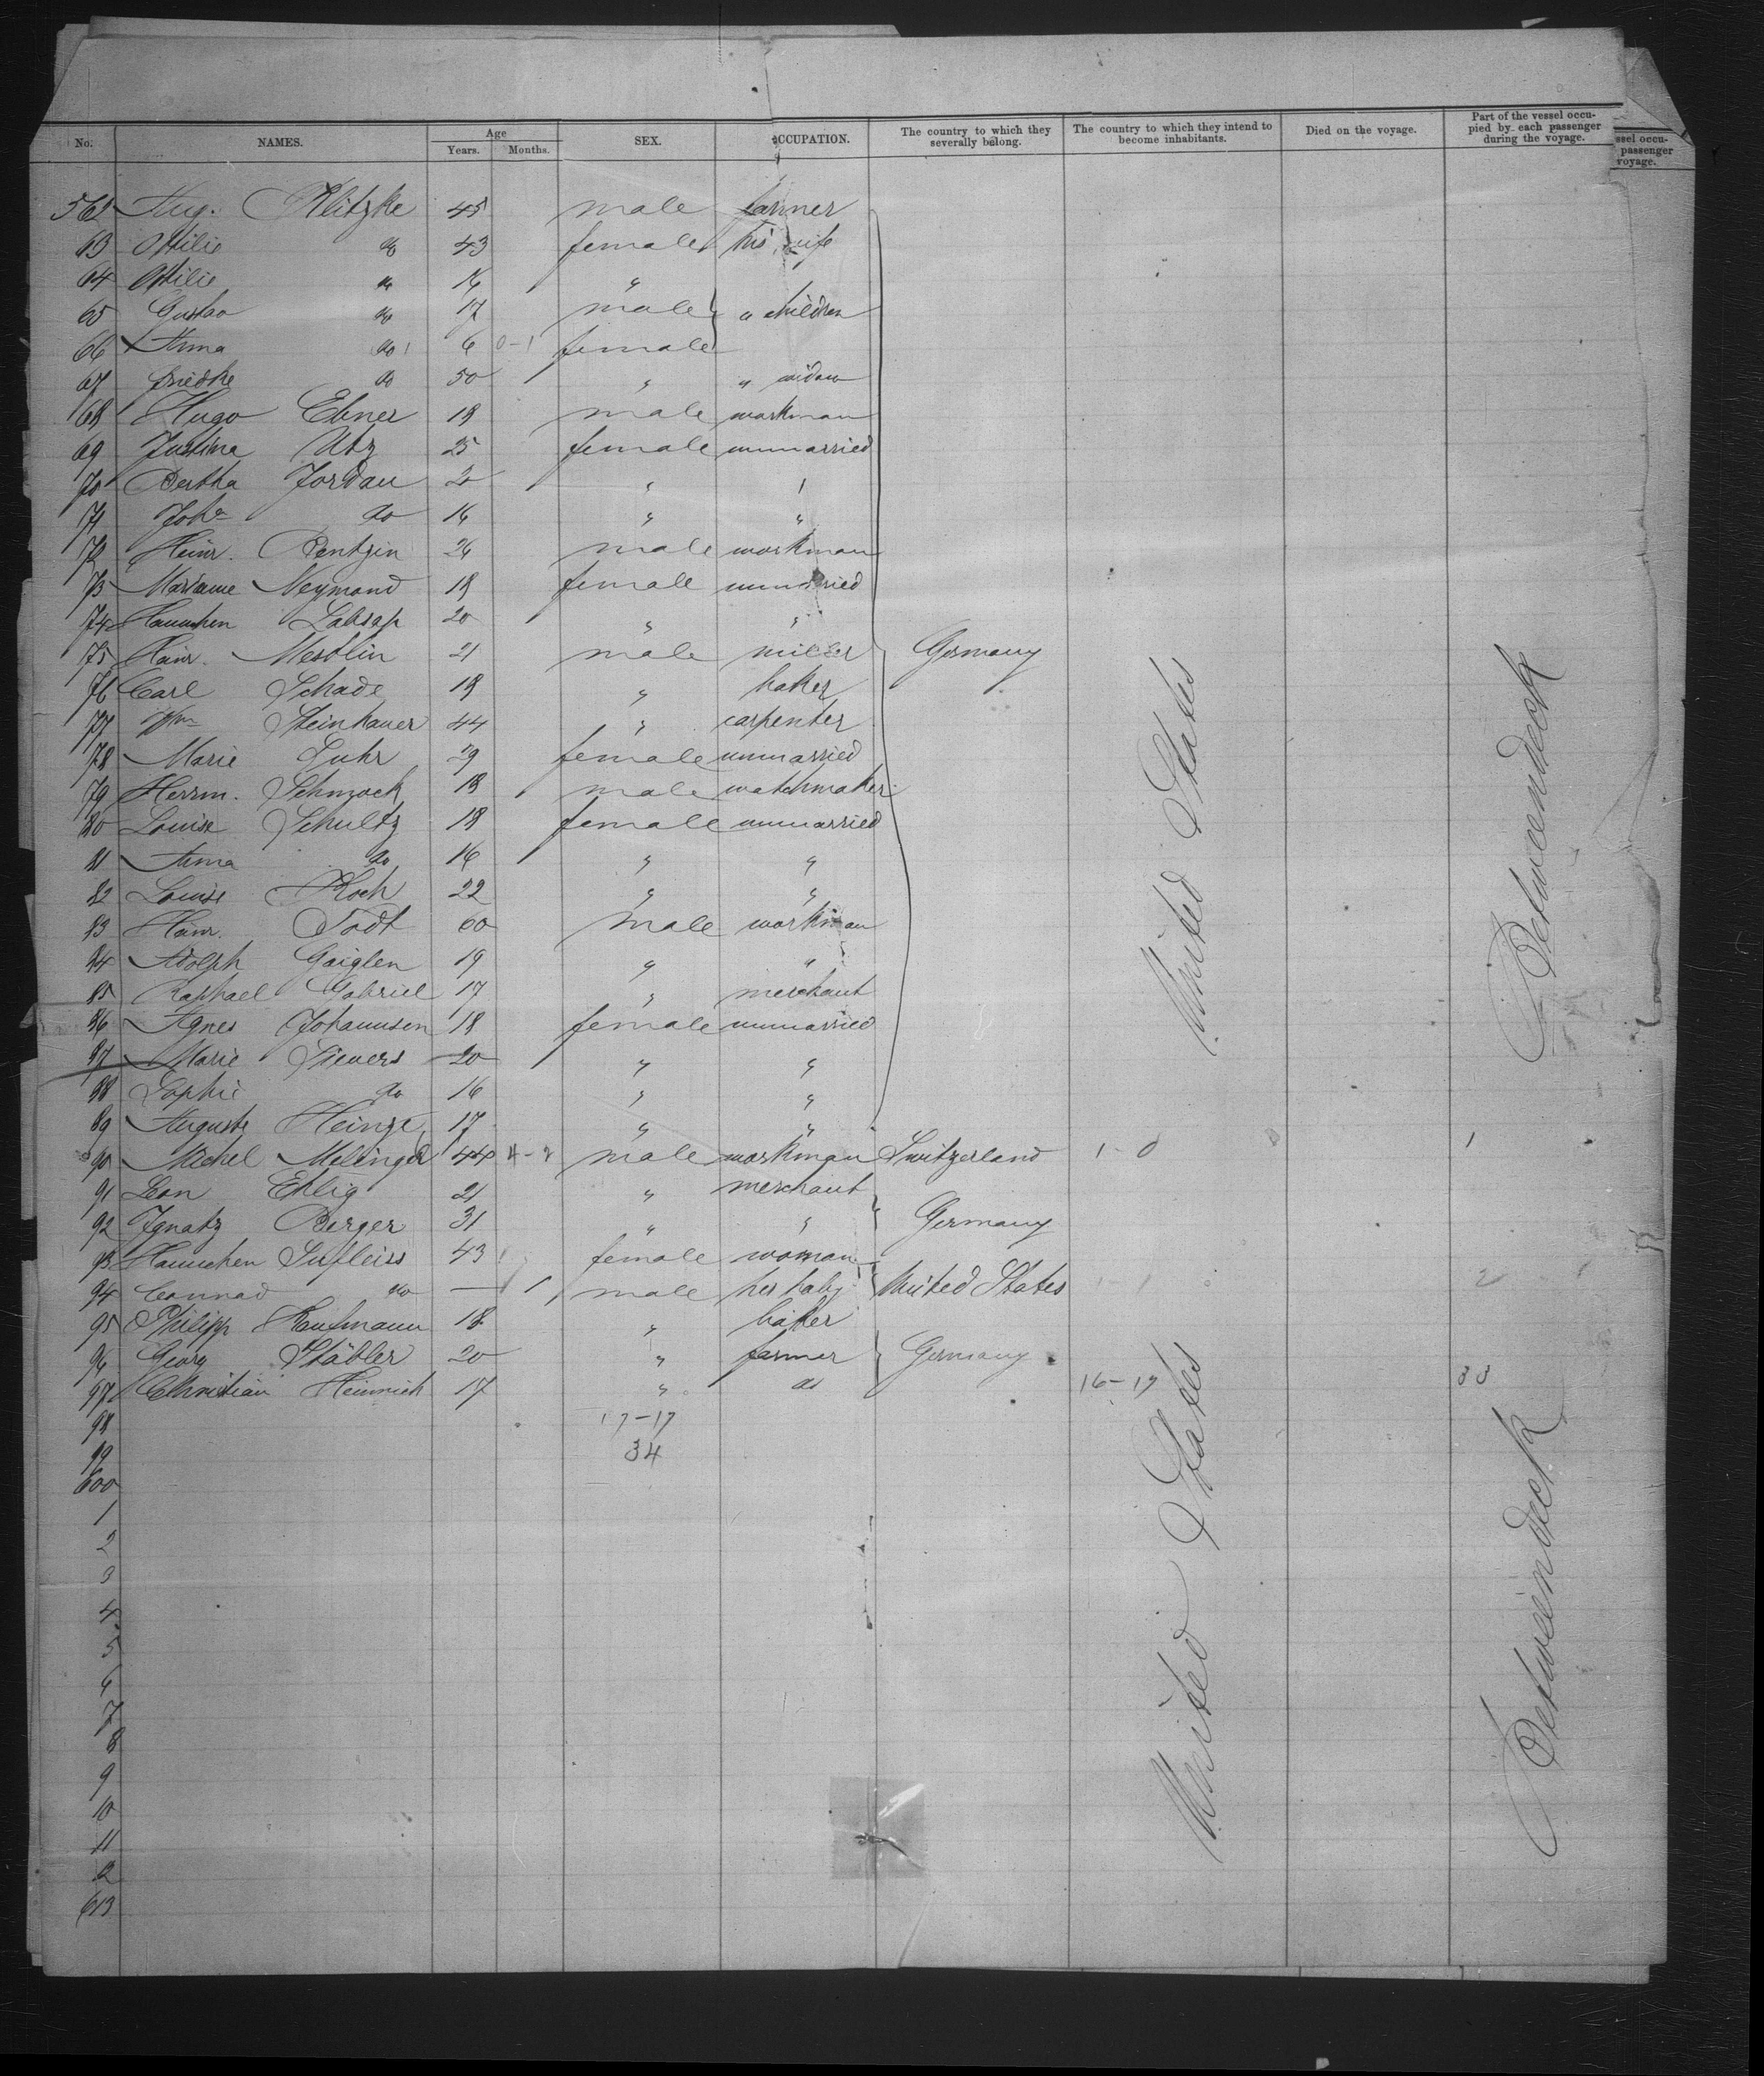 No. NAMES. Age Years. Months. SEX. OCCUPATION. The country to which they severally belong. The country to which they intend to become inhabitants. Died on the voyage. Part of the vessel occupied by each passenger during the voyage.
ssel occu- passenger voyage.
562 Aug. Klitzke 45 male farmer
63 Ottilie do 43 female his wife
64 Ottilie do "
65 Gustav do 17 male " children
66 Anna do 6 0-1 female
67 Friedke do 50 " " widow
68 Hugo Ebner 18 male workman
69 Justine Utz 25 female unmarried
70 Bertha Jordan "
71 Joha do 16 " "
72 Heinr. Bentzin 26 male workman
73 Marianne Neymand 18 female unmarried
74 Hannchen Labsap 20 " "
75 Heinr. Mesdlin 21 male miller Germany
76 Carl Schade 18 " baker
77 Wm Steinhauer 44 " carpenter
78 Marie Luhr 29 female unmarried
79 Herrm. Schmock 18 male watchmaker
80 Louise Schultz 18 female unmarried
81 Anna do 16 " "
82 Louise Koch 22 " "
83 Heinr. Todt 60 male workman
84 Adolph Gaiglen 19 " "
85 Raphael Gabriel 17 " merchant
86 Agnes Johannsen 18 female unmarried
87 Marie Sievers 20 " "
88 Sophie do 16 " "
89 Auguste Heinze 17 " "
United States
Betweendeck
90 Michel Melinger 44 male workman Switzerland 1-0 1
91 Leon Ehlig 21 " merchant
92 Ignatz Berger 31 " " Germany
93 Hannchen Sufleiss 43 female woman
94 Connad do — 1 male her baby United States 1-1 2
95 Philipp Kufmann 18 " baker
96 Georg Stäbler 20 " farmer Germany
97 Christian Heinrich 17 " do 16-17 33
98 17-17
99 34
600
1
2
3
4
5
6
7
8
9
10
11
2
613
United States
Betweendeck